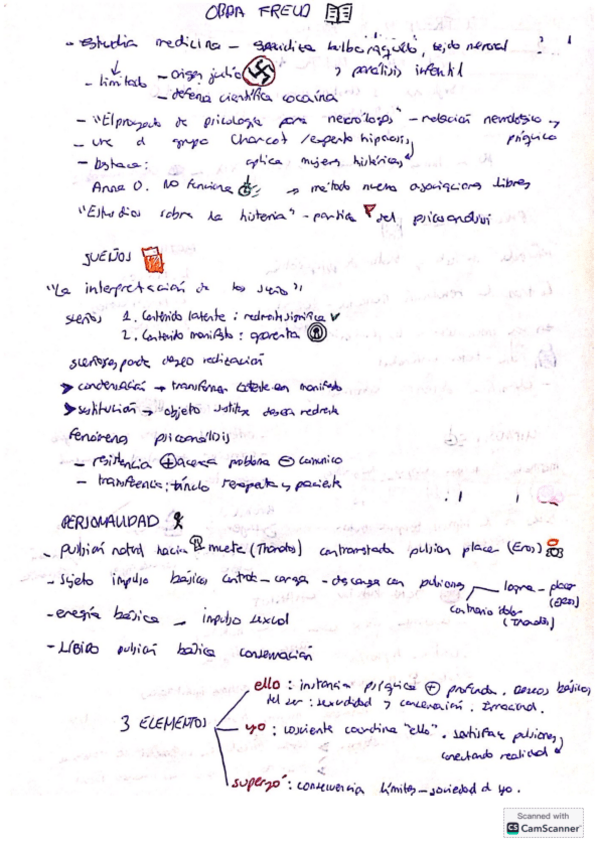 OBRA FREUD
- Estudia medicina - bulbo raquídeo, tejido nervioso
- limitado - origen judío y parálisis infantil
- defensa científica cocaína
- "El proyecto de psicología para neurólogos" - relación neurológico y psíquico
- une al grupo Charcot / experto hipnosis,
- Destaca: aplica mujeres histéricas
Anna O. No funciona → método nuevo asociaciones libres
"Estudios sobre la histeria" - partida del psicoanálisis
SUEÑOS
"La interpretación de los sueños"
sueños 1. Contenido latente: significa ✓
2. Contenido manifiesto: aparenta
deseo realización
> condensación → transforma latente en manifiesto
> sustitución → objeto sustituye
Fenómenos psicoanálisis
- resistencia + acerca problema - comunico
- transferencia: vínculo terapeuta y paciente
PERSONALIDAD
- Pulsión natural hacia muerte (Thanatos) contrarrestada pulsion placer (Eros)
- Sujeto impulso básicos control - carga - descarga con pulsiones logra - placer (EROS)
contrario (Thanatos)
- energía básica - impulso sexual
- LIBIDO pulsión básica conservación
3 ELEMENTOS
ello: instancia psíquica + profunda. deseos básicos
del ser: sexualidad y conservación. Irracional.
yo: consciente coordina "ello". satisface pulsiones,
conectando realidad
superyó: consecuencia límites - sociedad al yo.
Scanned with
CS CamScanner